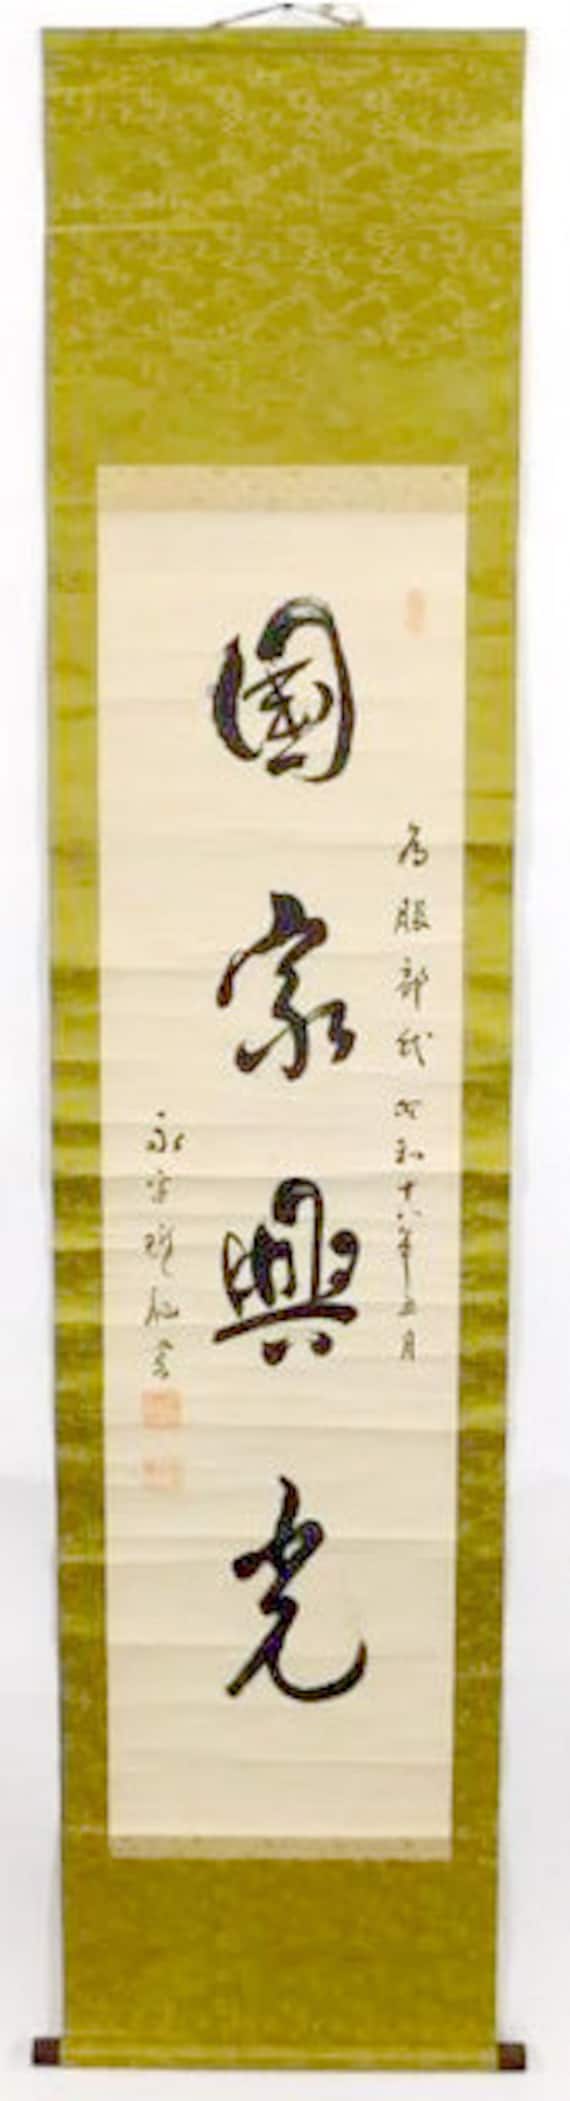 為服部氏 昭和十八年五月
國家興光
永